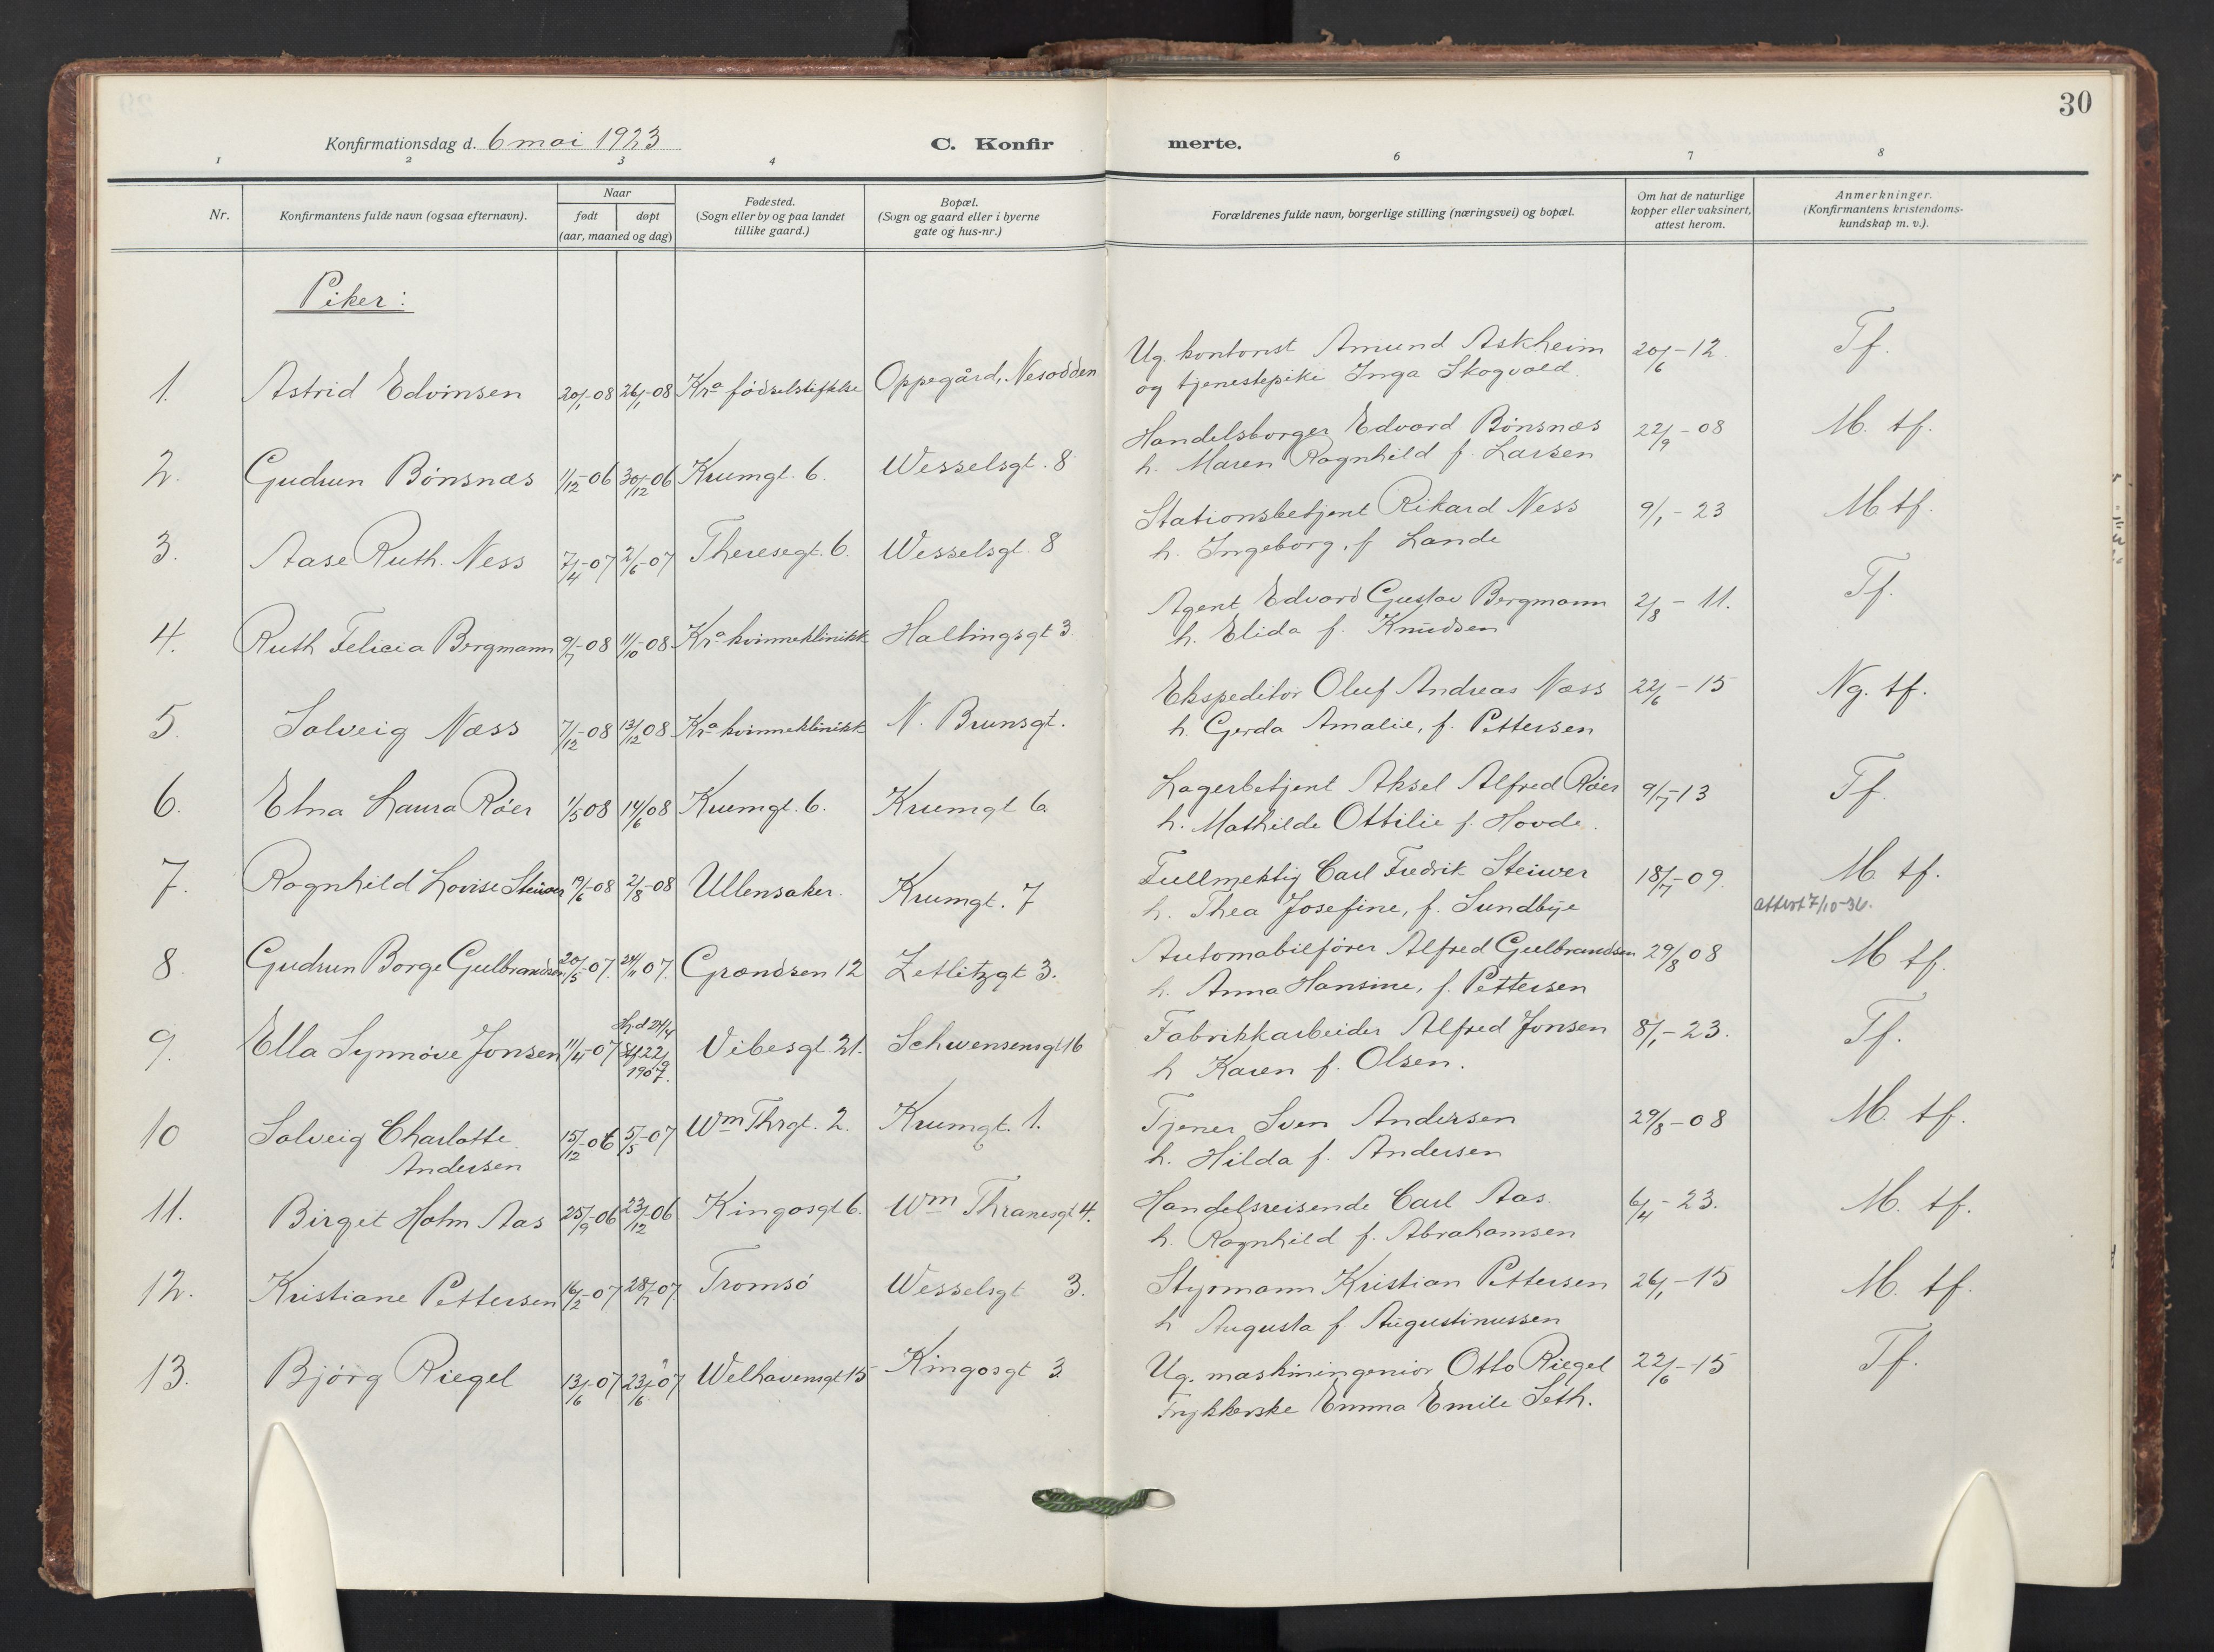 30
Konfirmationsdag d. 6 mai 1923
C. Konfirmerte.
1 2 3 4 6 7 8
Nr.
Konfirmantens fulde navn (ogsaa efternavn).
Naar
født døpt
(aar, maaned og dag)
Fødested.
(Sogn eller by og paa landet
tillike gaard.)
Bopæl.
(Sogn og gaard eller i byerne
gate og hus-nr.)
Forældrenes fulde navn, borgerlige stilling (næringsvei) og bopæl.
Om hat de naturlige
kopper eller vaksinert,
attest herom.
Anmerkninger.
(Konfirmantens kristendoms-
kundskap m. v.).
Piker:
1. Astrid Edvinsen 20/1-08 26/1-08 Kra fødselsstiftelse Oppegård, Nesodden Ug. kontorist Amund Askheim 20/6-12 Tf.
og tjenestepike Inga Skogvold.
2. Gudrun Bønsnæs 1/12-06 30/12-06 Krumgt. 6. Wesselsgt. 8 Handelsborger Edvard Bønsnæs 22/9-08 M. tf.
h. Maren Ragnhild f. Larsen
3. Aase Ruth Ness 7/4-07 2/6-07 Theresegt. 6. Wesselsgt. 8 Stationsbetjent Rikard Ness 9/1-23 M tf.
h. Ingeborg, f. Lande
4. Ruth Felicia Bergmann 9/7-08 11/10-08 Kra kvinneklinikk Hallingsgt 3 Agent Edvard Gustav Bergmann 2/8-11. Tf.
h. Elida f. Knudsen
5. Solveig Næss 7/12-08 13/12-08 Kra kvinneklinikk N. Brunsgt. Ekspeditør Oluf Andreas Næss 22/6-15 Ng. tf.
h. Gerda Amalie, f. Pettersen
6. Elna Laura Røer 1/5 08 14/6 08 Krumgt. 6. Krumgt 6a Lagerbetjent Aksel Alfred Røer 9/7-13 Tf.
h. Mathilde Ottilie f. Hovde.
7. Ragnhild Lovise Steiwer 19/6-08 2/8-08 Ullensaker. Krumgt. 7 Fullmektig Carl Fredrik Steiwer 18/7-09. M. tf.
h. Thea Josefine, f. Sundbye attest 7/10-36.
8. Gudrun Borge Gulbrandsen 20/5-07. 24/11 07. Grændsen 12 Zetlitzgt 3. Automobilfører Alfred Gulbrandsen 29/8 08 M tf.
h. Anna Hansine, f. Pettersen
9. Ella Synnøve Jonsen 11/4-07 Hj.d 24/4
22/9
1907. Vibesgt. 21. Schwensensgt 16 Fabrikkarbeider Alfred Jonsen 8/1-23. Tf.
h Karen f. Olsen.
10 Solveig Charlotte 15/12-06 5/5-07 Wm Thrgt. 2. Krumgt. 1. Tjener Sven Andersen 29/8-08 M. tf.
Andersen h. Hilda f. Andersen
11. Birget Holm Aas 25/9-06 23/12-06 Kingosgt 6. Wm Thranesgt 4. Handelsreisende Carl Aas. 6/4-23. M. tf.
h. Ragnhild f. Abrahamsen
12. Kristiane Pettersen 16/2-07 28/7-07 Tromsø Wesselsgt 3. Styrmann Kristian Pettersen 26/1-15 M. tf.
h Augusta f. Augustinussen
13. Bjørg Riegel 13/6-07 23/6-07 Welhavensgt 15 Kingosgt 3 Ug. maskiningeniør Otto Riegel 22/6-15 Tf.
Trykkerske Emma Emile Seth.